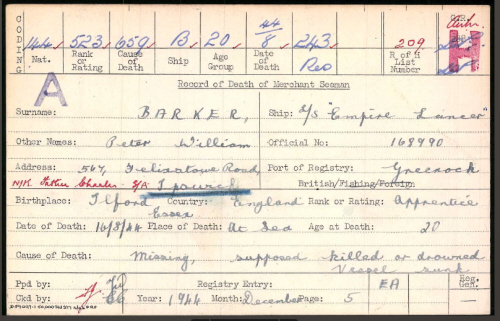 CODING
144 523 659 B 20 44/8 243 209
Nat. Rank or Rating Cause of Death Ship Age Group Date of Death Reo R of H List Number
A
Record of Death of Merchant Seaman
Surname: BARKER, Ship: S/S "Empire Lancer"
Other Names: Peter William Official No: 168990
Address: 567, Felixstowe Road, Port of Registry: Greenock
N/K Father Charles S/A Ipswich British/Fishing/Foreign
Birthplace: Ilford Country: England Rank or Rating: Apprentice
Essex
Date of Death: 16/8/44 Place of Death: At Sea Age at Death: 20
Cause of Death: Missing, supposed killed or drowned
Vessel sunk
Ppd by: Registry Entry: EA Reg. Gen.
Ckd by: Year: 1944 Month: December Page: 5